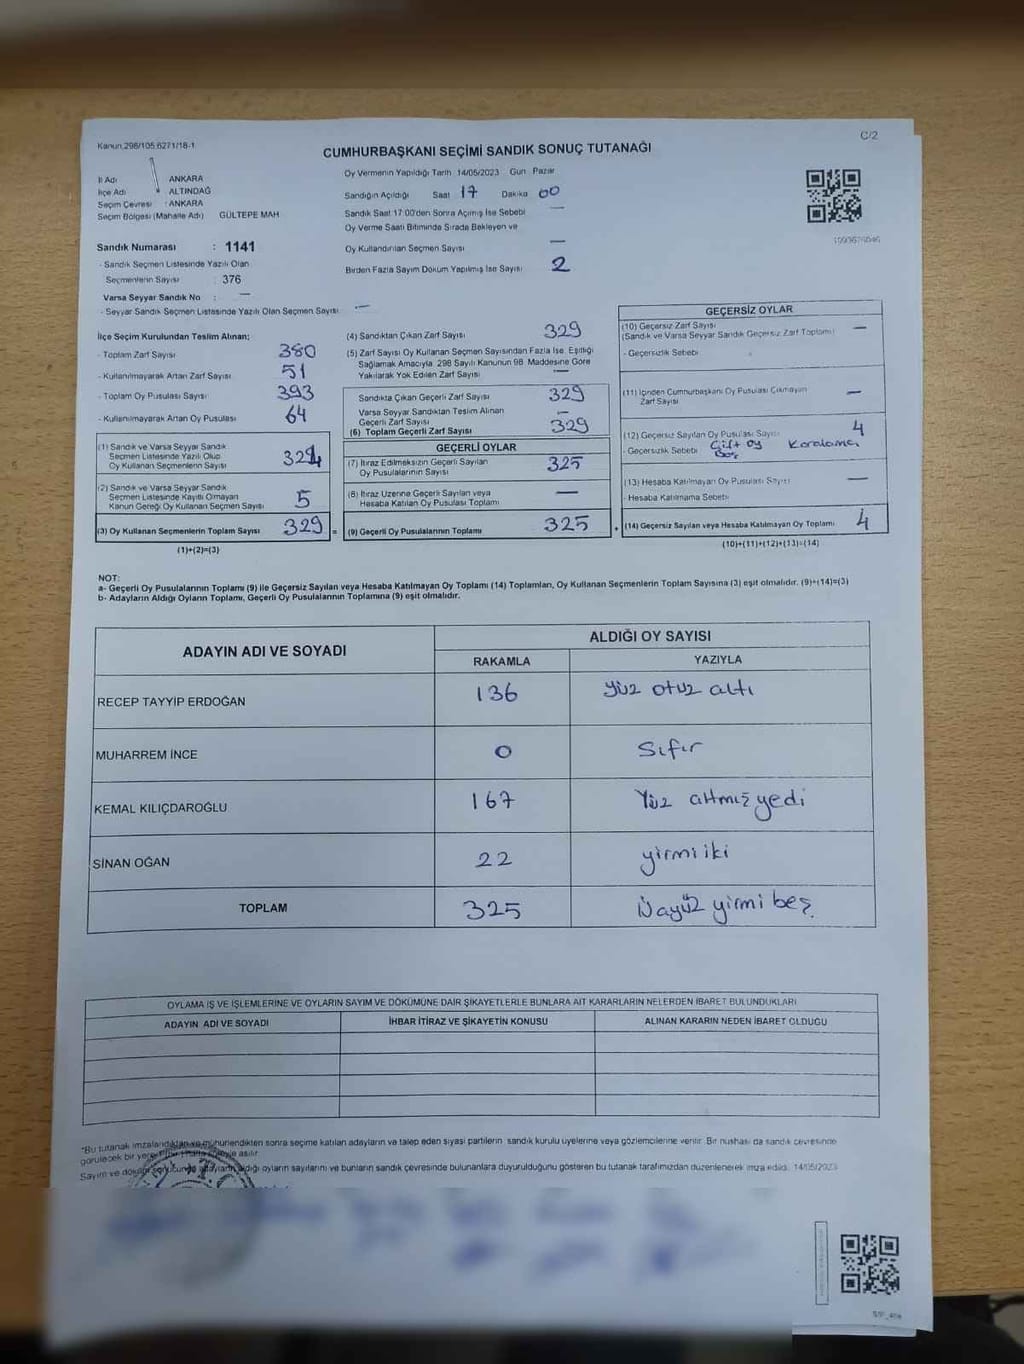 Kanun,298/105,6271/18-1
C/2
CUMHURBAŞKANI SEÇİMİ SANDIK SONUÇ TUTANAĞI
İl Adı ANKARA
İlçe Adı ALTINDAĞ
Seçim Çevresi : ANKARA
Seçim Bölgesi (Mahalle Adı) GÜLTEPE MAH
Sandık Numarası : 1141
- Sandık Seçmen Listesinde Yazılı Olan
Seçmenlerin Sayısı : 376
Varsa Seyyar Sandık No : —
- Seyyar Sandık Seçmen Listesinde Yazılı Olan Seçmen Sayısı —
Oy Vermenin Yapıldığı Tarih 14/05/2023 Gün Pazar
Sandığın Açıldığı Saat 17 Dakika 00
Sandık Saat 17:00'den Sonra Açılmış İse Sebebi —
Oy Verme Saati Bitiminde Sırada Bekleyen ve
Oy Kullandırılan Seçmen Sayısı —
Birden Fazla Sayım Döküm Yapılmış İse Sayısı 2
İlçe Seçim Kurulundan Teslim Alınan;
- Toplam Zarf Sayısı 380
- Kullanılmayarak Artan Zarf Sayısı 51
- Toplam Oy Pusulası Sayısı 393
- Kullanılmayarak Artan Oy Pusulası 64
(1) Sandık ve Varsa Seyyar Sandık
Seçmen Listesinde Yazılı Olup
Oy Kullanan Seçmenlerin Sayısı 324
(2) Sandık ve Varsa Seyyar Sandık
Seçmen Listesinde Kayıtlı Olmayan
Kanun Gereği Oy Kullanan Seçmen Sayısı 5
(3) Oy Kullanan Seçmenlerin Toplam Sayısı 329 =
(1)+(2)=(3)
(4) Sandıktan Çıkan Zarf Sayısı 329
(5) Zarf Sayısı Oy Kullanan Seçmen Sayısından Fazla İse, Eşitliği
Sağlamak Amacıyla 298 Sayılı Kanunun 98. Maddesine Göre
Yakılarak Yok Edilen Zarf Sayısı —
Sandıkta Çıkan Geçerli Zarf Sayısı 329
Varsa Seyyar Sandıktan Teslim Alınan
Geçerli Zarf Sayısı —
(6) Toplam Geçerli Zarf Sayısı 329
GEÇERLİ OYLAR
(7) İtiraz Edilmeksizin Geçerli Sayılan
Oy Pusulalarının Sayısı 325
(8) İtiraz Üzerine Geçerli Sayılan veya
Hesaba Katılan Oy Pusulası Toplamı —
(9) Geçerli Oy Pusulalarının Toplamı 325 +
GEÇERSİZ OYLAR
(10) Geçersiz Zarf Sayısı
(Sandık ve Varsa Seyyar Sandık Geçersiz Zarf Toplamı) —
- Geçersizlik Sebebi
(11) İçinden Cumhurbaşkanı Oy Pusulası Çıkmayan
Zarf Sayısı —
(12) Geçersiz Sayılan Oy Pusulası Sayısı 4
- Geçersizlik Sebebi Çift oy Karalama
Boş
(13) Hesaba Katılmayan Oy Pusulası Sayısı —
- Hesaba Katılmama Sebebi
(14) Geçersiz Sayılan veya Hesaba Katılmayan Oy Toplamı 4
(10)+(11)+(12)+(13)=(14)
NOT:
a- Geçerli Oy Pusulalarının Toplamı (9) ile Geçersiz Sayılan veya Hesaba Katılmayan Oy Toplamı (14) Toplamları, Oy Kullanan Seçmenlerin Toplam Sayısına (3) eşit olmalıdır. (9)+(14)=(3)
b- Adayların Aldığı Oyların Toplamı, Geçerli Oy Pusulalarının Toplamına (9) eşit olmalıdır.
ADAYIN ADI VE SOYADI
ALDIĞI OY SAYISI
RAKAMLA YAZIYLA
RECEP TAYYİP ERDOĞAN 136 yüz otuz altı
MUHARREM İNCE 0 Sıfır
KEMAL KILIÇDAROĞLU 167 Yüz altmış yedi
SİNAN OĞAN 22 yirmi iki
TOPLAM 325 Üçyüz yirmi beş
OYLAMA İŞ VE İŞLEMLERİNE VE OYLARIN SAYIM VE DÖKÜMÜNE DAİR ŞİKAYETLERLE BUNLARA AİT KARARLARIN NELERDEN İBARET BULUNDUKLARI
ADAYIN ADI VE SOYADI İHBAR İTİRAZ VE ŞİKAYETİN KONUSU ALINAN KARARIN NEDEN İBARET OLDUĞU
*Bu tutanak imzalandıktan ve mühürlendikten sonra seçime katılan adayların ve talep eden siyasi partilerin sandık kurulu üyelerine veya gözlemcilerine verilir. Bir nüshası da sandık çevresinde
görülecek bir yere asılır.
Sayım ve döküm sonucunda adayların aldığı oyların sayılarını ve bunların sandık çevresinde bulunanlara duyurulduğunu gösteren bu tutanak tarafımızdan düzenlenerek imza edildi. 14/05/2023